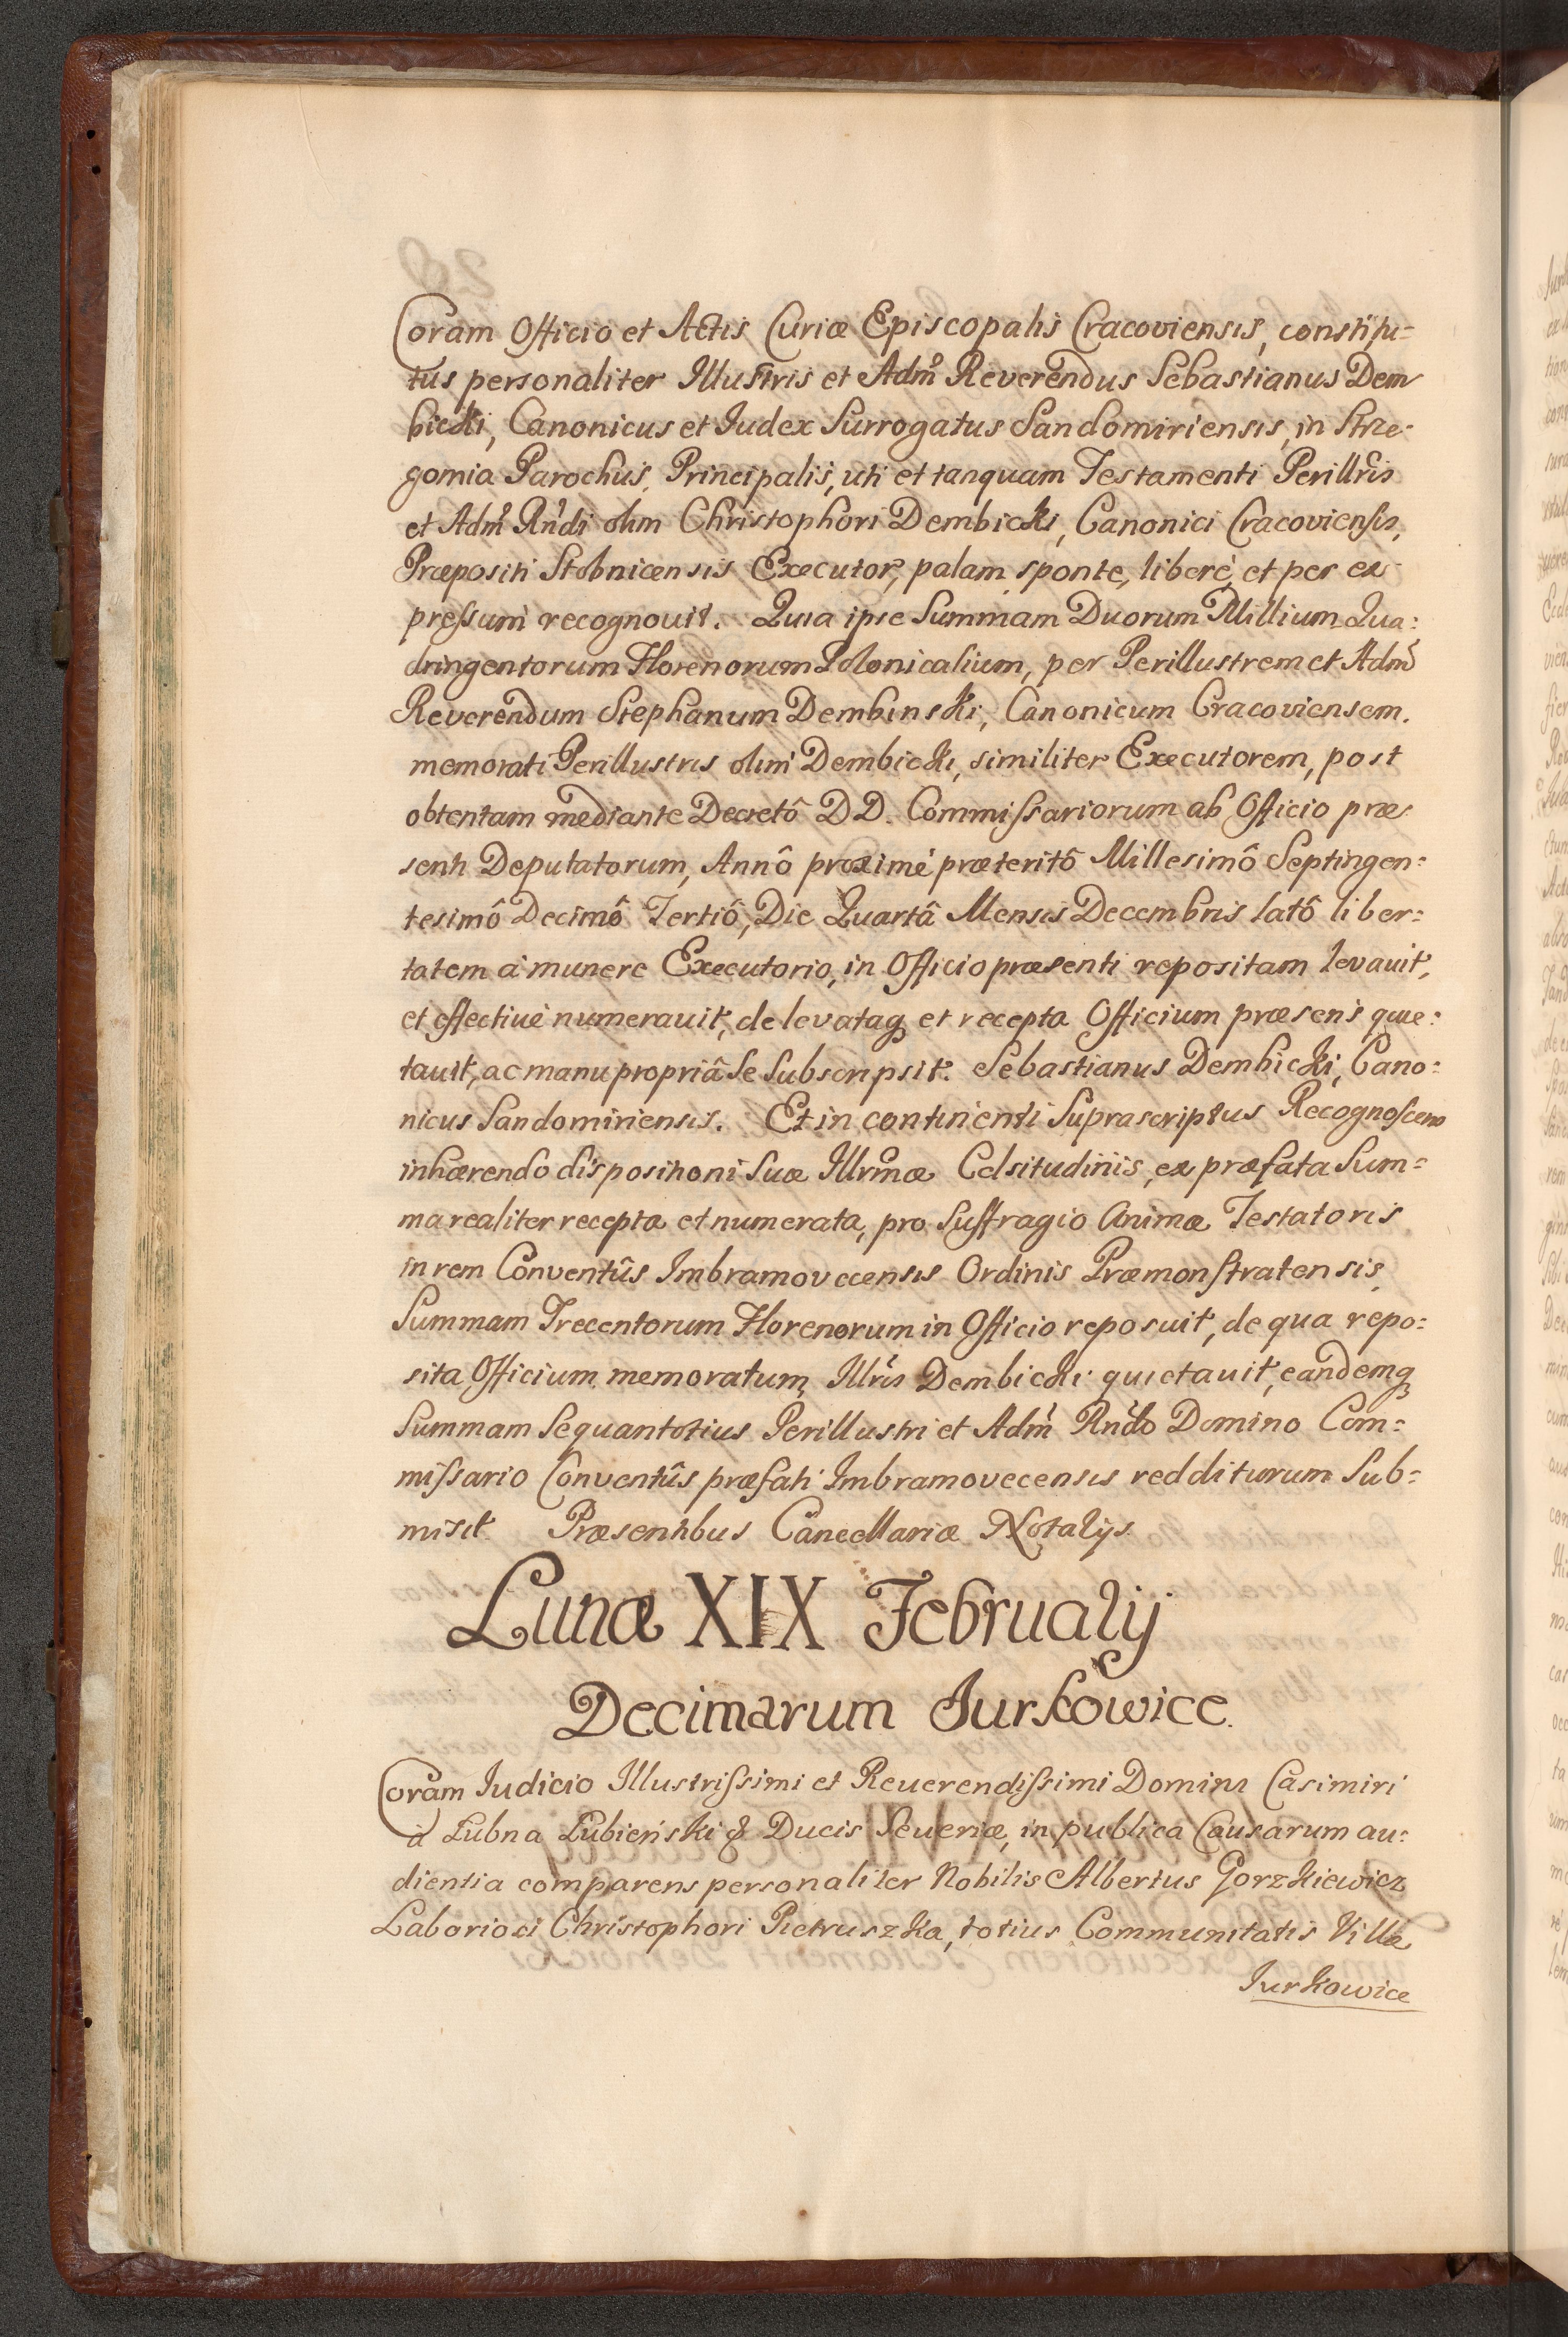 Coram Officio et Actis Curiæ Episcopalis Cracoviensis, constitu=
tus personaliter Illustris et Admo Reverendus Sebastianus Dem
bicki, Canonicus et Iudex Surrogatus Sandomiriensis, in Strze=
gomia Parochus, Principalis, uti et tanquam Testamenti Perillris
et Admo Rndi olim Christophori Dembicki, Canonici Cracoviensis,
Præpositi Stobnicensis Executor, palam sponte, liberè, et per ex
pressum recognouit. Quia ipse Summam Duorum Millium Qua=
dringentorum Florenorum Polonicalium, per Perillustrem et Admo
Reverendum Stephanum Dembinski, Canonicum Cracoviensem.
memorati Perillustris olim Dembicki, similiter Executorem, post
obtentam mediante Decretô DD. Commissariorum ab Officio præ
senti Deputatorum, Annô proximè præteritô Millesimô Septingen=
tesimô Decimô Tertiô, Die Quartâ Mensis Decembris latô liber=
tatem à munere Executorio, in Officio præsenti repositam levauit,
et effectiuè numerauit, de levataq3 et recepta Officium præsens quie=
tauit, ac manu propriâ Se Subscripsit. Sebastianus Dembicki, Cano=
nicus Sandomiriensis. Et in continenti Suprascriptus Recognoscens
inhærendo dispositioni Suæ Illrmæ Celsitudinis, ex præfata Sum=
ma realiter recepta et numerata, pro Suffragio Animæ Testatoris
in rem Conventûs Imbramovecensis Ordinis Præmonstratensis
Summam Trecentorum Florenorum in Officio reposuit, de qua repo=
sita Officium memoratum, Illris Dembicki quietauit, eandemq3
Summam Sequantotius Perillustri et Adm Rndo Domino Com=
missario Conventûs præfati Imbramovecensis redditurum Sub=
misit Præsentibus Cancellariæ Notarijs
Lunæ XIX Februarij
Decimarum Jurkowice.
Coram Iudicio Illustrissimi et Reuerendissimi Domini Casimiri
à Lubna Lubieński & Ducis Seueriæ, in publica Causarum au=
dientia comparens personaliter Nobilis Albertus Gorzkiewicz
Laboriosi Christophori Pietruszka, totius Communitatis Villæ
Iurkowice